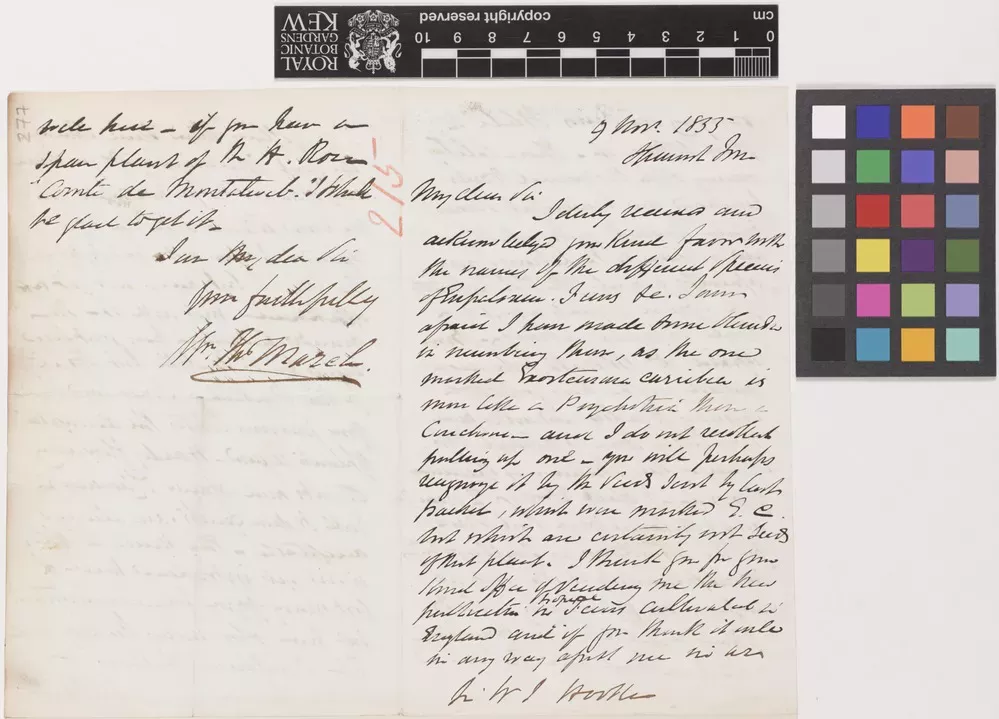 cm 0 1 2 3 4 5 6 7 8 9 10
copyright reserved
ROYAL
BOTANIC
GARDENS
KEW
277
215
9 Nov. 1855
My dear Sir
I duly received and
acknowledged your kind favor with
the names of the different species
of Ferns &c. I am
afraid I have made some
in numbering them, as the one
marked Exostemma caribea is
more like a Psychotria than a
Cinchona - and I do not recollect
putting up one - you will perhaps
recognize it by the seeds sent by last
packet, which were marked E. C.
but which are certainly not seeds
of that plant. I thank you for your
kind offer of sending me the new
publication in Ferns cultivated in
England and if you think it will
in any way assist me in
Sir W J Hooker
well here - if you have a
spare plant of the H. Rose
"Comte de Montalivet" I shall
be glad to get it -
I am My dear Sir
Your faithfully
Wm. Thos March.